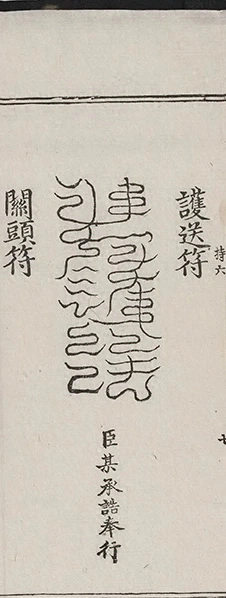 護送符
持六
臣某承誥奉行
關頭符